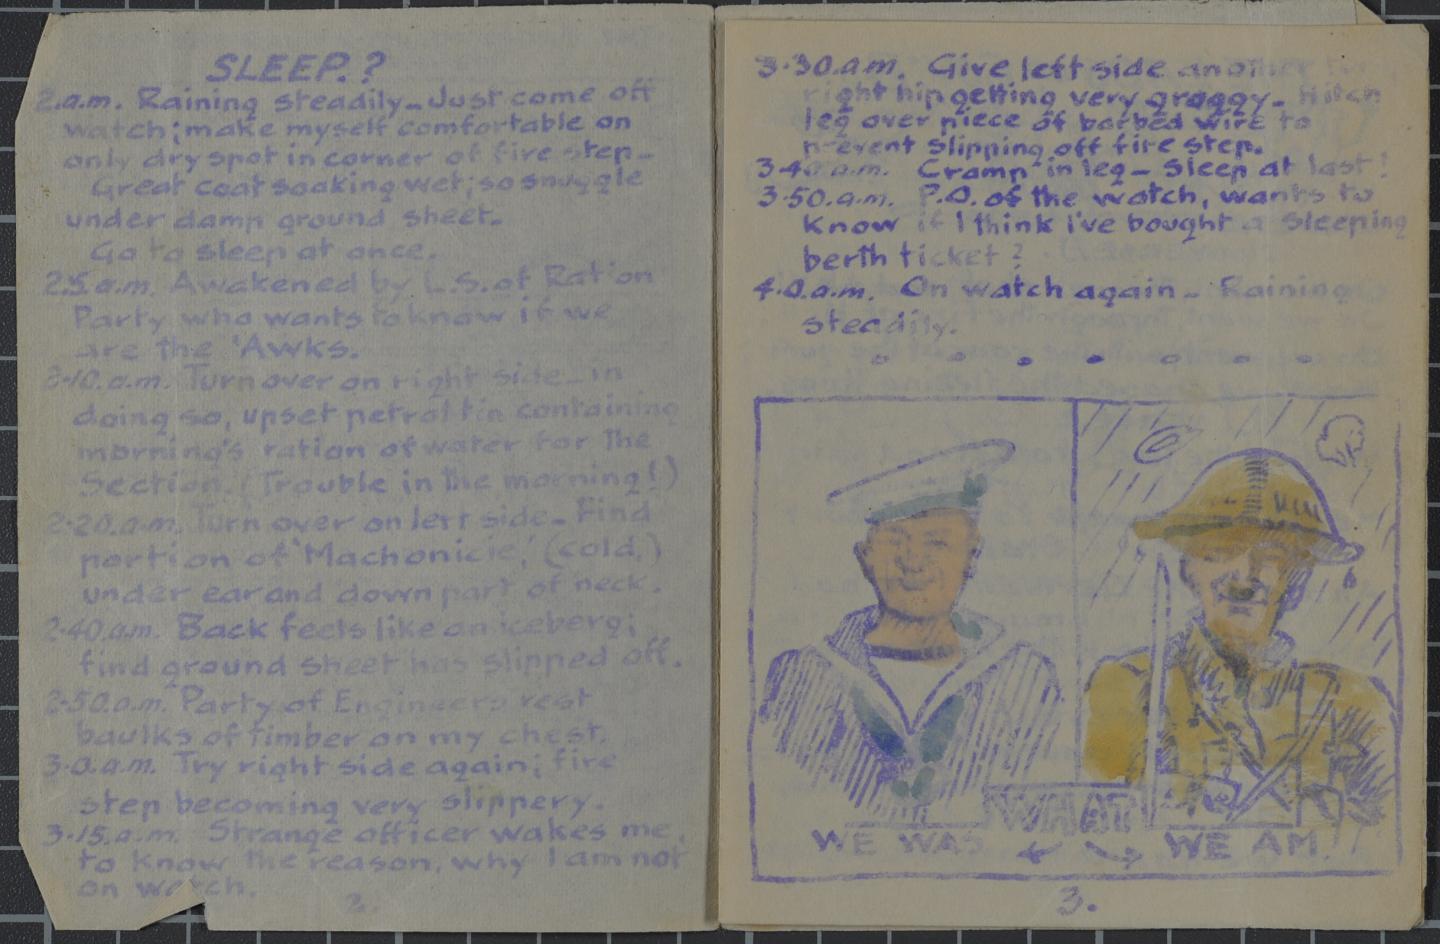 SLEEP.?
2.a.m. Raining steadily_Just come off
watch; make myself comfortable on
only dry spot in corner of fire step_
Great coat soaking wet; so snuggle
under damp ground sheet.
Go to sleep at once.
2.5.a.m. Awakened by L.S. of Ration
Party who wants to know if we
are the 'Awks.
2.10.a.m. Turn over on right side_in
doing so, upset petrol tin containing
morning's ration of water for the
Section. (Trouble in the morning!)
2.20.a.m. Turn over on left side_Find
portion of 'Machonicie,' (cold.)
under ear and down part of neck.
2.40.a.m. Back feels like an iceberg;
find ground sheet has slipped off.
2.50.a.m. Party of Engineers rest
baulks of timber on my chest.
3.0.a.m. Try right side again; fire
step becoming very slippery.
3.15.a.m. Strange officer wakes me,
to know the reason, why I am not
on watch.
2.
3.30.a.m. Give left side another
right hip getting very groggy_ Hitch
leg over piece of barbed wire to
prevent slipping off fire step.
3.40.a.m. Cramp in leg_ Sleep at last!
3.50.a.m. P.O. of the watch, wants to
know if I think I've bought a sleeping
berth ticket?
4.0.a.m. On watch again_ Raining
steadily.
WHAT
WE WAS WE AM.
3.